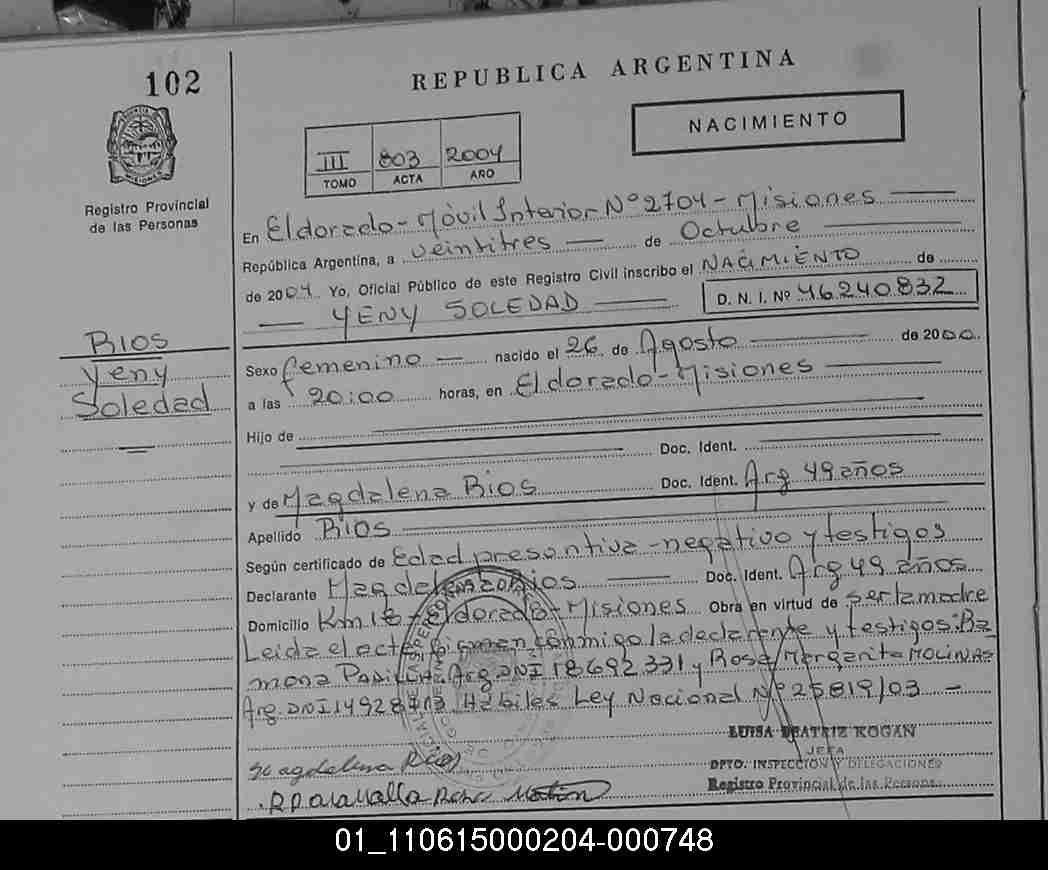 102
REPUBLICA ARGENTINA
NACIMIENTO
III 803 2004
TOMO ACTA AÑO
Registro Provincial
de las Personas
En Eldorado - Móvil Interior Nº 2704 - Misiones
República Argentina, a veintitres de Octubre
de 2004 Yo, Oficial Público de este Registro Civil inscribo el NACIMIENTO de
YENY SOLEDAD D. N. I. Nº 46240832
RIOS
Yeny
Soledad
Sexo femenino nacido el 26 de Agosto de 2000
a las 20:00 horas, en Eldorado - Misiones
Hijo de
Doc. Ident.
y de Magdalena Rios Doc. Ident. Arg 49 años
Apellido Rios
Según certificado de Edad presontiva - negativo y testigos
Declarante Magdalena Rios Doc. Ident. Arg 49 años
Domicilio Km 18 - Eldorado - Misiones Obra en virtud de ser la madre
Leida el acta firman conmigo la declarante y testigos: Ra
mona PADILLA Arg DNI 18692331 y Rosa Margarita MOLINAS
Arg. DNI 14928 Hábiles Ley Nacional Nº 25819/03 -
LUISA BEATRIZ KOGAN
JEFA
DPTO. INSPECCIÓN Y DELEGACIONES
Registro Provincial de las Personas
Magdalena Rios
01_110615000204-000748